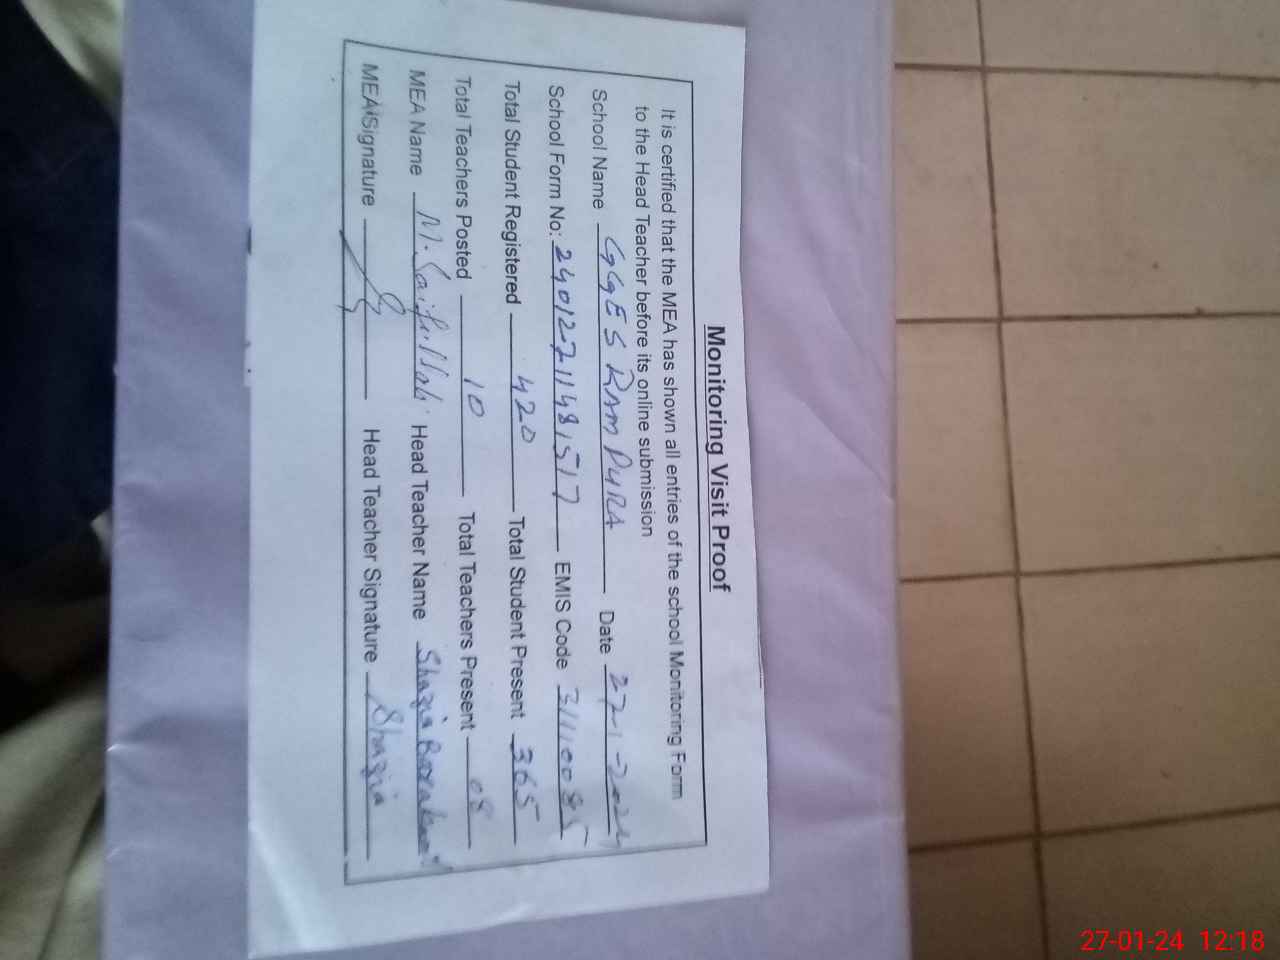 Monitoring Visit Proof
It is certified that the MEA has shown all entries of the school Monitoring Form
to the Head Teacher before its online submission
School Name GGES RAMPURA Date 27-1-2024
School Form No: 24012711481517 EMIS Code 31110085
Total Student Registered 420 Total Student Present 365
Total Teachers Posted 10 Total Teachers Present 08
MEA Name M. Saifullah Head Teacher Name Shazia
MEA Signature Head Teacher Signature Shazia
27-01-24 12:18